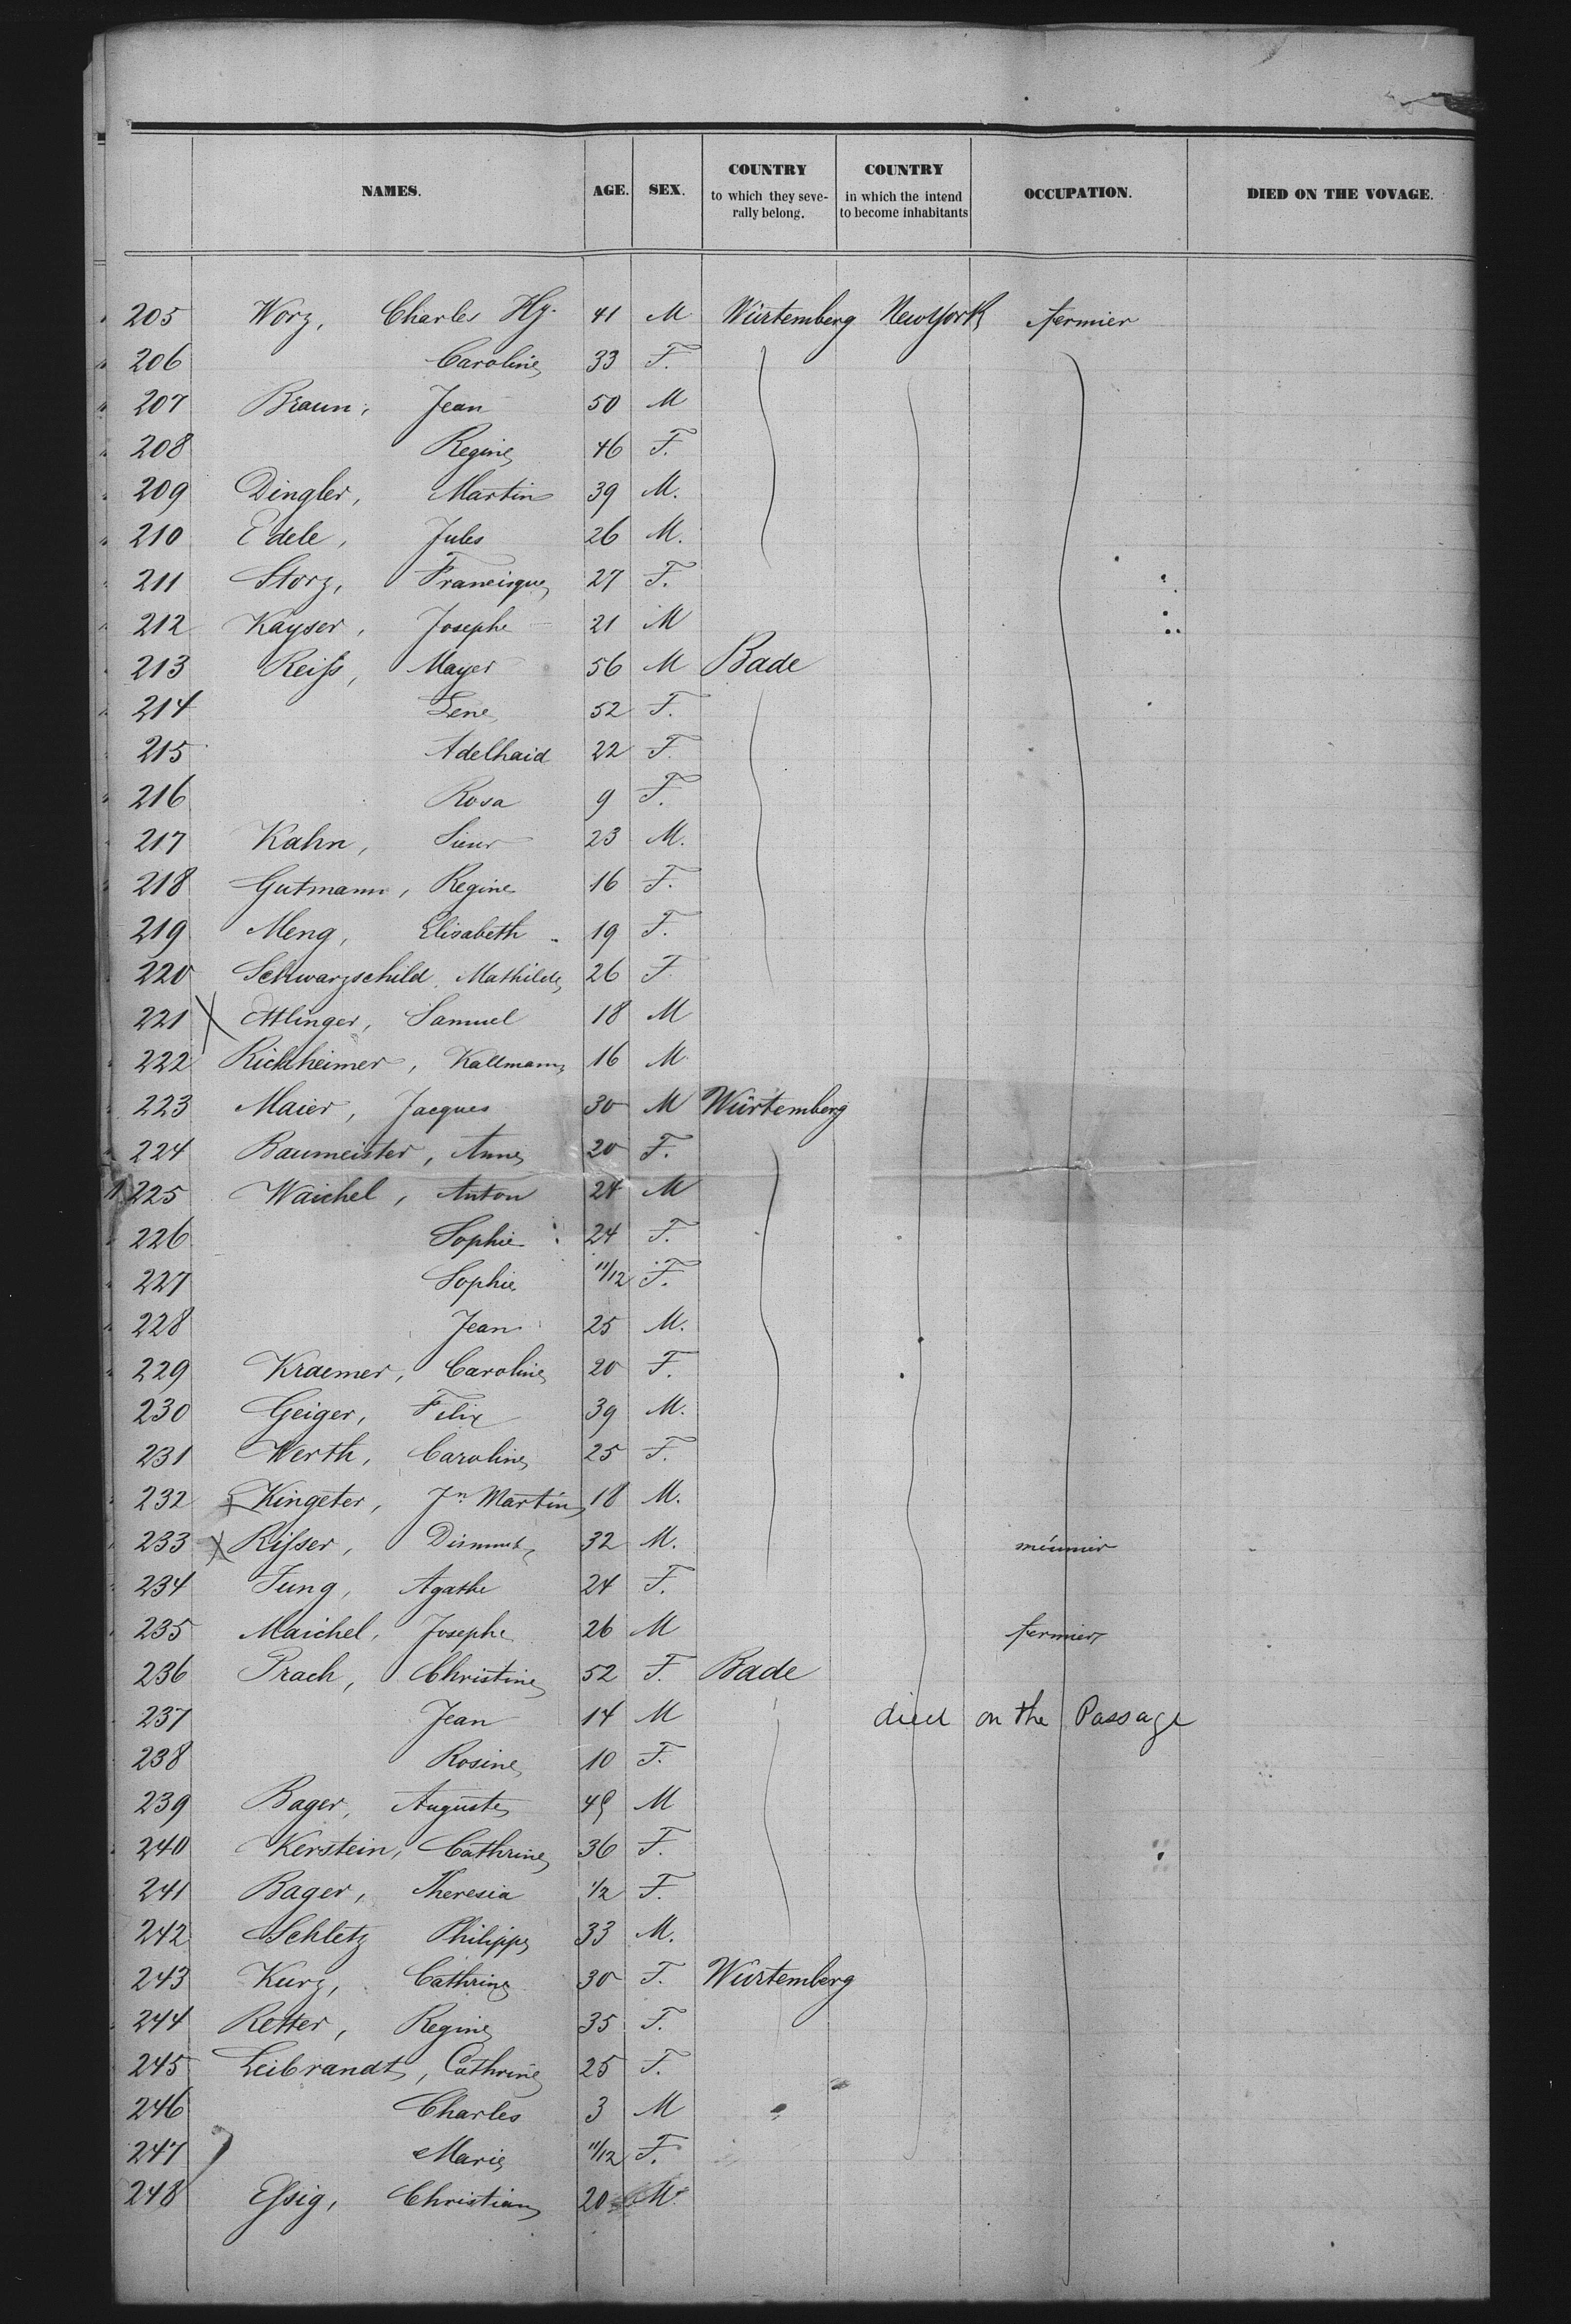 NAMES. AGE. SEX. COUNTRY to which they seve-rally belong. COUNTRY in which the intend to become inhabitants OCCUPATION. DIED ON THE VOYAGE.
205 Worz, Charles Hy. 41 M Würtemberg New York fermier
206 Caroline 33 F.
207 Braun, Jean 50 M
208 Regine 46 F.
209 Dingler, Martin 39 M.
210 Edele, Jules 26 M.
211 Storz, Francisque 27 F.
212 Kayser, Josephe 21 M
213 Reiſs, Mayer 56 M Bade
214 Lene 52 F.
215 Adelhaid 22 F.
216 Rosa 9 F.
217 Kahn, 23 M.
218 Gutmann, Regine 16 F.
219 Meng, Elisabeth 19 F.
220 Schwarzschild, Mathilde 26 F
221 X Ettlinger, Samuel 18 M
222 Richheimer, Kallmann 16 M
223 Maier, Jacques 30 M Würtemberg
224 Baumeister, Anne 20 F.
225 Waichel, Anton 24 M
226 Sophie 24 F.
227 Sophie 11/12 F.
228 Jean 25 M.
229 Kraemer, Caroline 20 F.
230 Geiger, Felix 39 M.
231 Werth, Caroline 25 F.
232 x Kingeter, Jn Martin 18 M.
233 x Riſser, 32 M. méunier
234 Jung, Agathe 24 F.
235 Maichel, Josephe 26 M fermier
236 Prach, Christine 52 F. Bade
237 Jean 14 M died on the Passage
238 Rosine 10 F.
239 Bager, Auguste 49 M
240 Kerstein, Cathrine 36 F.
241 Bager, Theresia 1/2 F.
242 Schletz Philippe 33 M.
243 Kurz, Cathrine 30 F. Würtemberg
244 Retter, Regine 35 F.
245 Leibrandt, Cathrine 25 F.
246 Charles 3 M
247 Marie 11/12 F.
248 Eſsig, Christian 20 M.